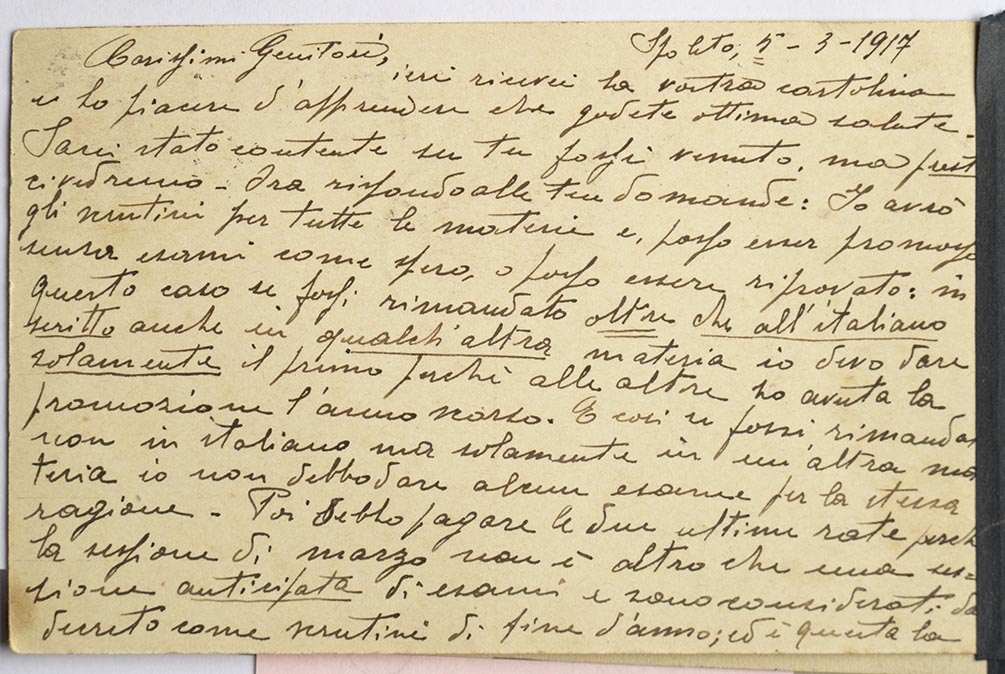 Spoleto, 5 - 3 - 1917
Carissimi Genitori,
ieri ricevei la vostra cartolina
e ho piacere d'apprendere che godete ottima salute -
Sarei stato contente se tu fossi venuto, ma prest
ci vedremo - Ora rispondo alle tue domande: Io avrò
gli scrutini per tutte le materie e, posso esser promosso
senza esami come spero, o posso essere riprovato: in
questo caso se fossi rimandato oltre che all'italiano
scritto anche in qualch'altra materia io devo dare
solamente il primo perchè alle altre ho avuta la
promozione l'anno scorso. E così se fossi rimandat
non in italiano ma solamente in un'altra ma
teria io non debbo dare alcun esame per la stessa
ragione - Poi debbo pagare le due ultime rate perch
la sessione di marzo non è altro che una ses=
sione anticipata di esami e sono considerati da
decreto come scrutini di fine d'anno; ed è questa la